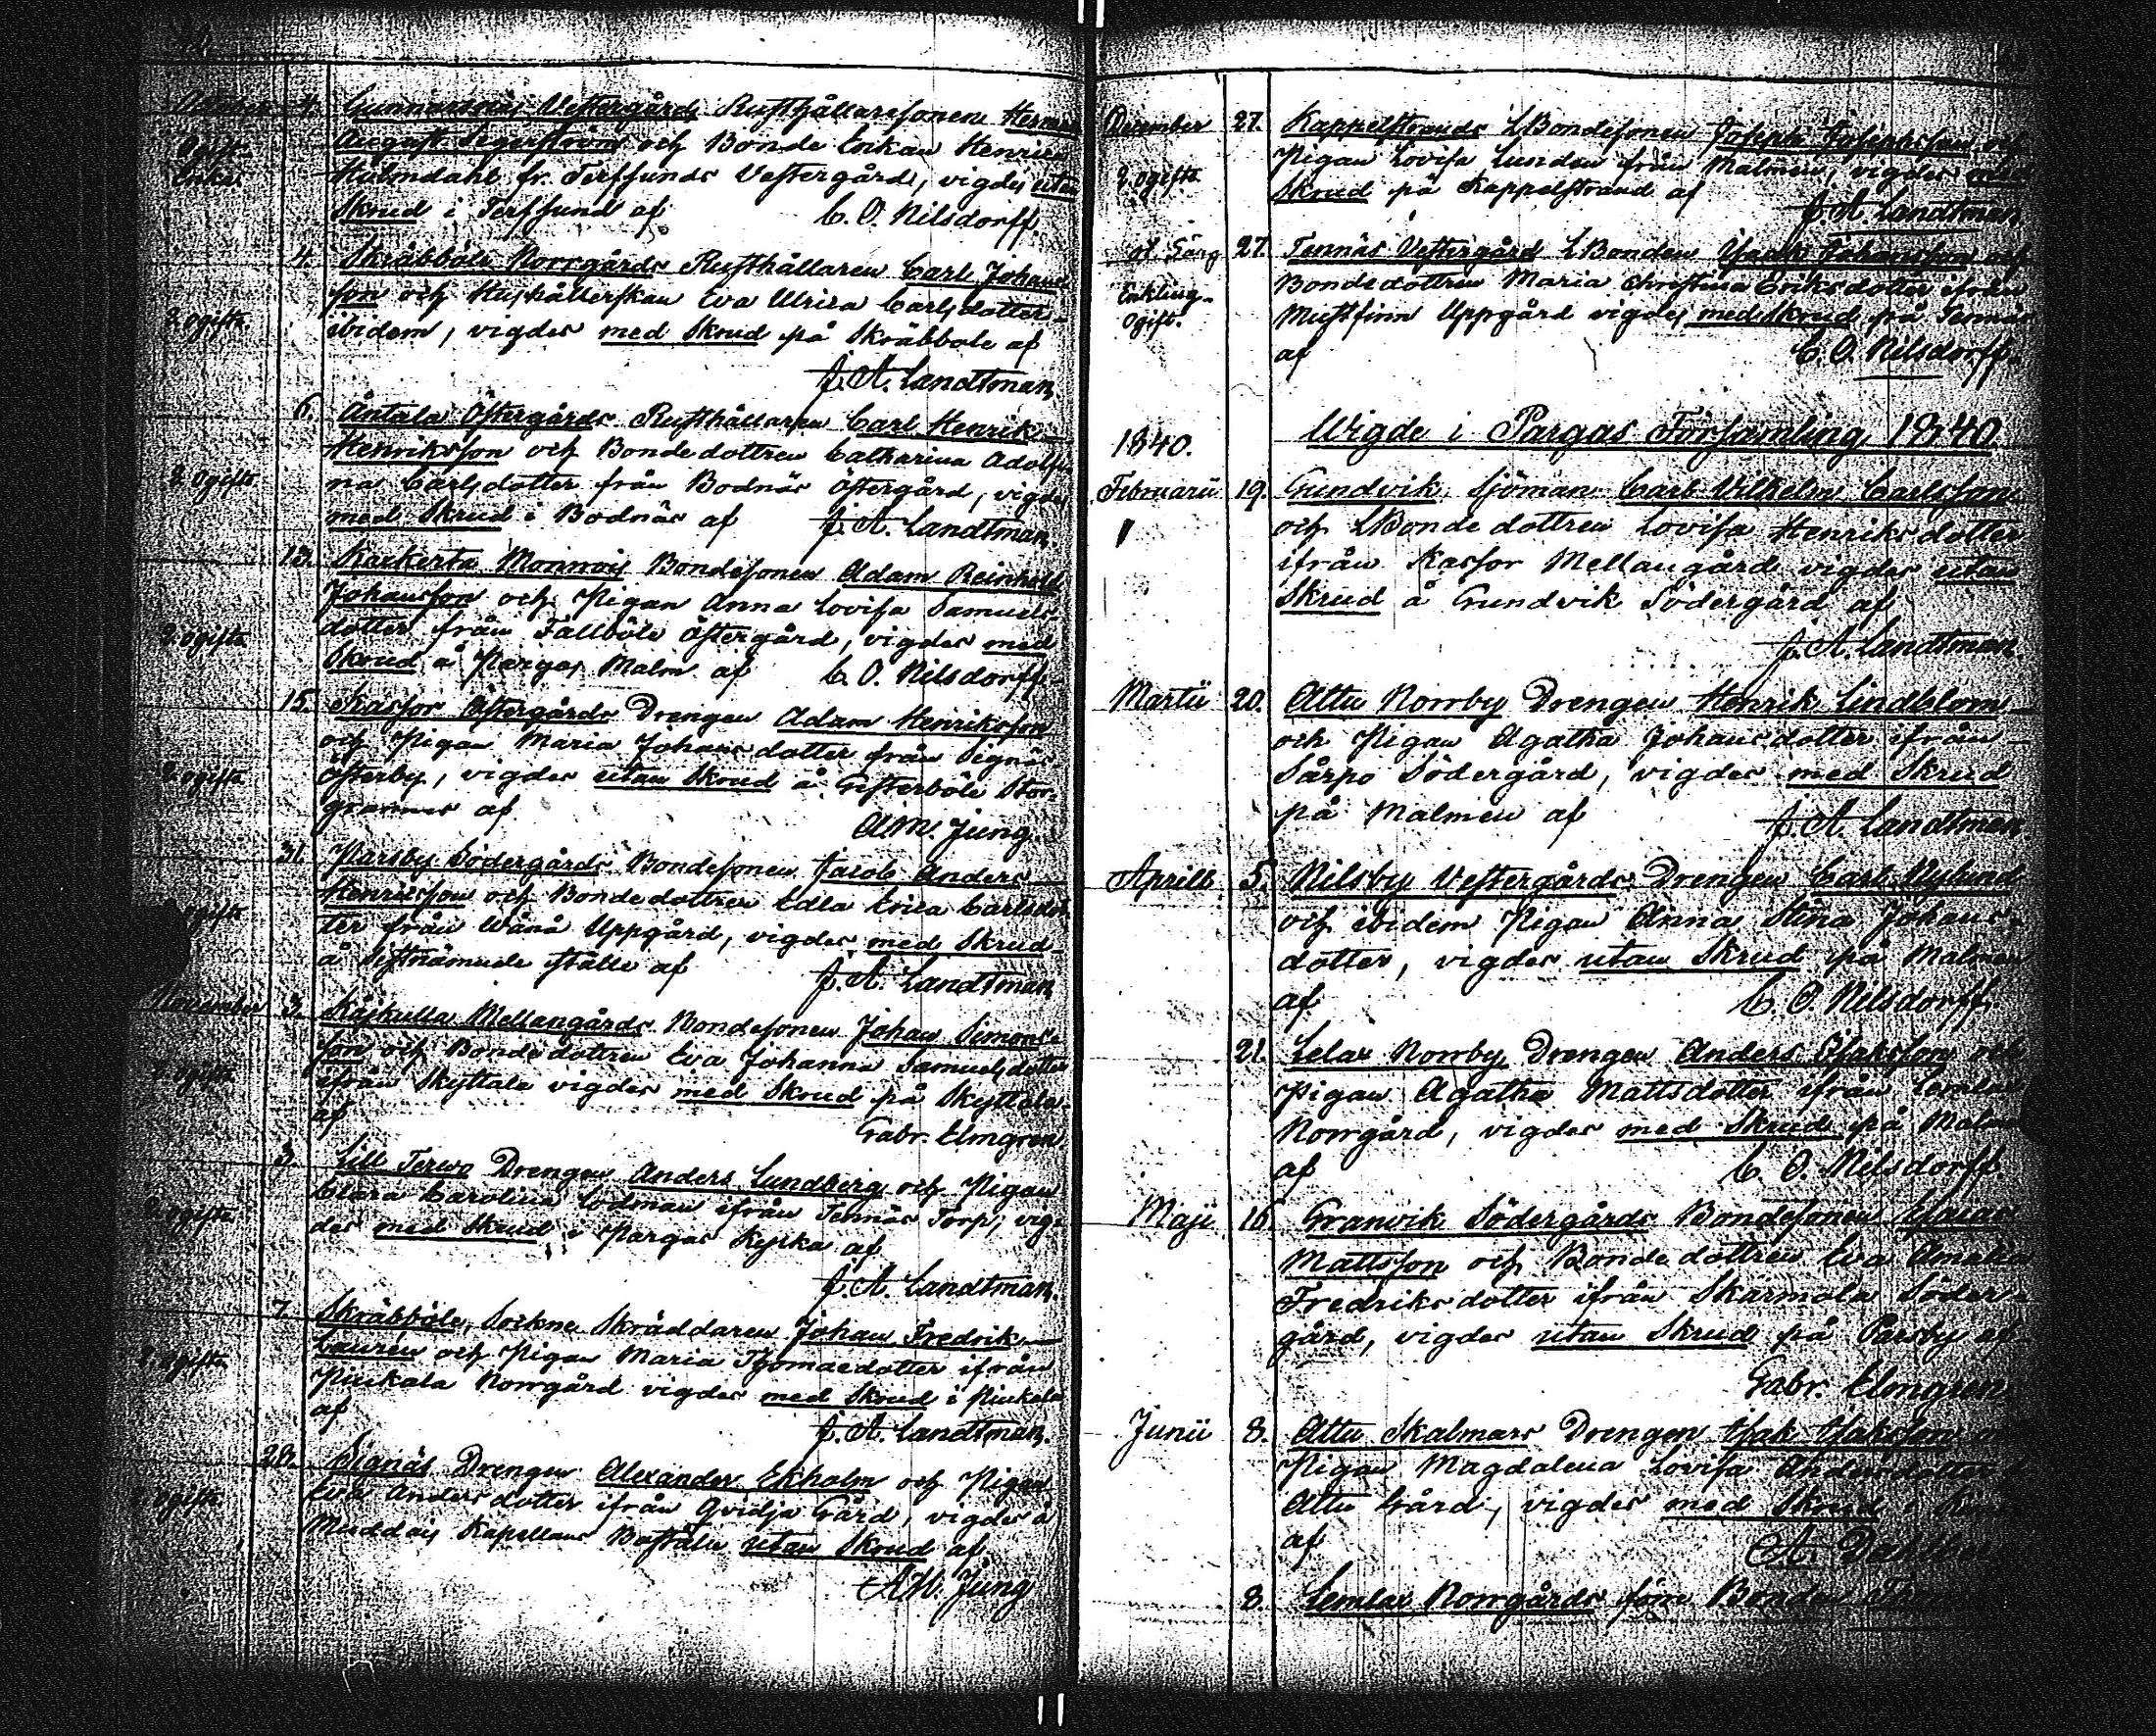 October 4. Gunnarsnäs Westergårds Rusthållaresonen Herman
Ogift. August Segerström och Bonde Enkan Henrica
Enka. Holmdahl fr. Terfsunds Westergård, vigdes utan
Skrud i Terfsund af C. O. Nilsdorff.
4. Skräbböle Norrgårds Rusthållaren Carl Johans
son och Hushållerskan Eva Ulrica Carlsdotter
2 ogifta ibidem, vigdes med Skrud på Skräbböle af
J. A. Landtman
6. Åntala Östergårds Rusthållaren Carl Henrik
Henriksson och Bondedottren Catharina Adolfi-
2 ogifta na Carlsdotter från Bodnäs Östergård, vigdes
med Skrud i Bodnäs af J. A. Landtman.
13. Kackerta Monnois Bondesonen Adam Reinhold
Johansson och Pigan Anna Lovisa Samuels-
2 ogifta dotter från Tallböle Östergård, vigdes med
Skrud å Pargas Malm af C. O. Nilsdorff
15. Kasfor Östergårds Drengen Adam Henriksson
och Pigan Maria Johansdotter från Signäs
2 ogifta Österby, vigdes utan Skrud å Gesterböle Stor-
grannas af A.M. Jung.
31. Parsby Södergårds Bondesonen Jacob Anders
Henricsson och Bondedottren Edla Erica Carlsdot-
ogifta ter från Wånå Uppgård, vigdes med Skrud
å sistnämnde ställe af J. A. Landtman
November 3. Käskulla Mellangårds Bondesonen Johan Simons-
son och Bondedottren Eva Johanna Samuelsdotter
2 ogifta ifrån Skyttala vigdes med Skrud på Skyttala
af Gabr. Elmgren
3. Lill Terwo Drengen Anders Lundberg och Pigan
Clara Carolina Edman ifrån Tennäs Torp, vig-
2 ogifta des med Skrud i Pargas Kyrka af
J. A. Landtman.
7. Skräbböle, Sockne Skräddaren Johan Fredrik
Laurén och Pigan Maria Thomasdotter ifrån
2 ogifta Piukala Norrgård vigdes med Skrud i Piukala
af J. A. Landtman.
28. Signäs Drengen Alexander Ekholm och Pigan
2 ogifta Eva Andersdotter ifrån Qvidja Gård, vigdes å
Muddais Kapellans Boställe utan Skrud af
A.M. Jung
December 27. Kappelstrands LBondesonen Joseph Josephsson och
2 ogifta Pigan Lovisa Lundan från Malmen, vigdes med
Skrud på Kappelstrand af
J. A. Landtman
27. Tennäs Westergård LBonden Isack Johansson och
Enkling. Bondedottren Maria Christina Eriksdotter ifrån
Ogift. Mustfinn Uppgård vigdes med Skrud på Tennäs
af C. O. Nilsdorff.
1840. Wigde i Pargas Församling 1840
Februarii 19. Gundvik Sjöman Carl Vilhelm Carlsson
och LBondedottren Lovisa Henriksdotter
ifrån Kasfor Mellangård vigdes utan
Skrud å Gundvik Södergård af
J. A. Landtman
Martii 20. Attu Norrby Drengen Henrik Lindblom
och Pigan Agatha Johansdotter ifrån
Sårpo Södergård, vigdes med Skrud
på Malmen af J. A. Landtman
Aprill 5. Nilsby Westergårds Drengen Carl Nylund
och ibidem Pigan Anna Stina Johans-
dotter, vigdes utan Skrud på Malmen
af C. O. Nilsdorff.
21. Lelax Norrby Drengen Anders Isaksson och
Pigan Agatha Mattsdotter ifrån Lemlax
Norrgård, vigdes med Skrud på Malmen
af C. O. Nilsdorff
Maji 16. Granvik Södergårds Bondesonen
Mattsson och Bondedottren Eva Amalia
Fredriksdotter ifrån Skärmola Söder-
gård, vigdes utan Skrud på Parsby af
Gabr. Elmgren
Junii 8. Attu Skalmars Drengen Isak Isaksson
Pigan Magdalena Lovisa Andersdotter
Attu Gård, vigdes med Skrud i
af A.
8. Lemlax Norrgårds förre Bonden